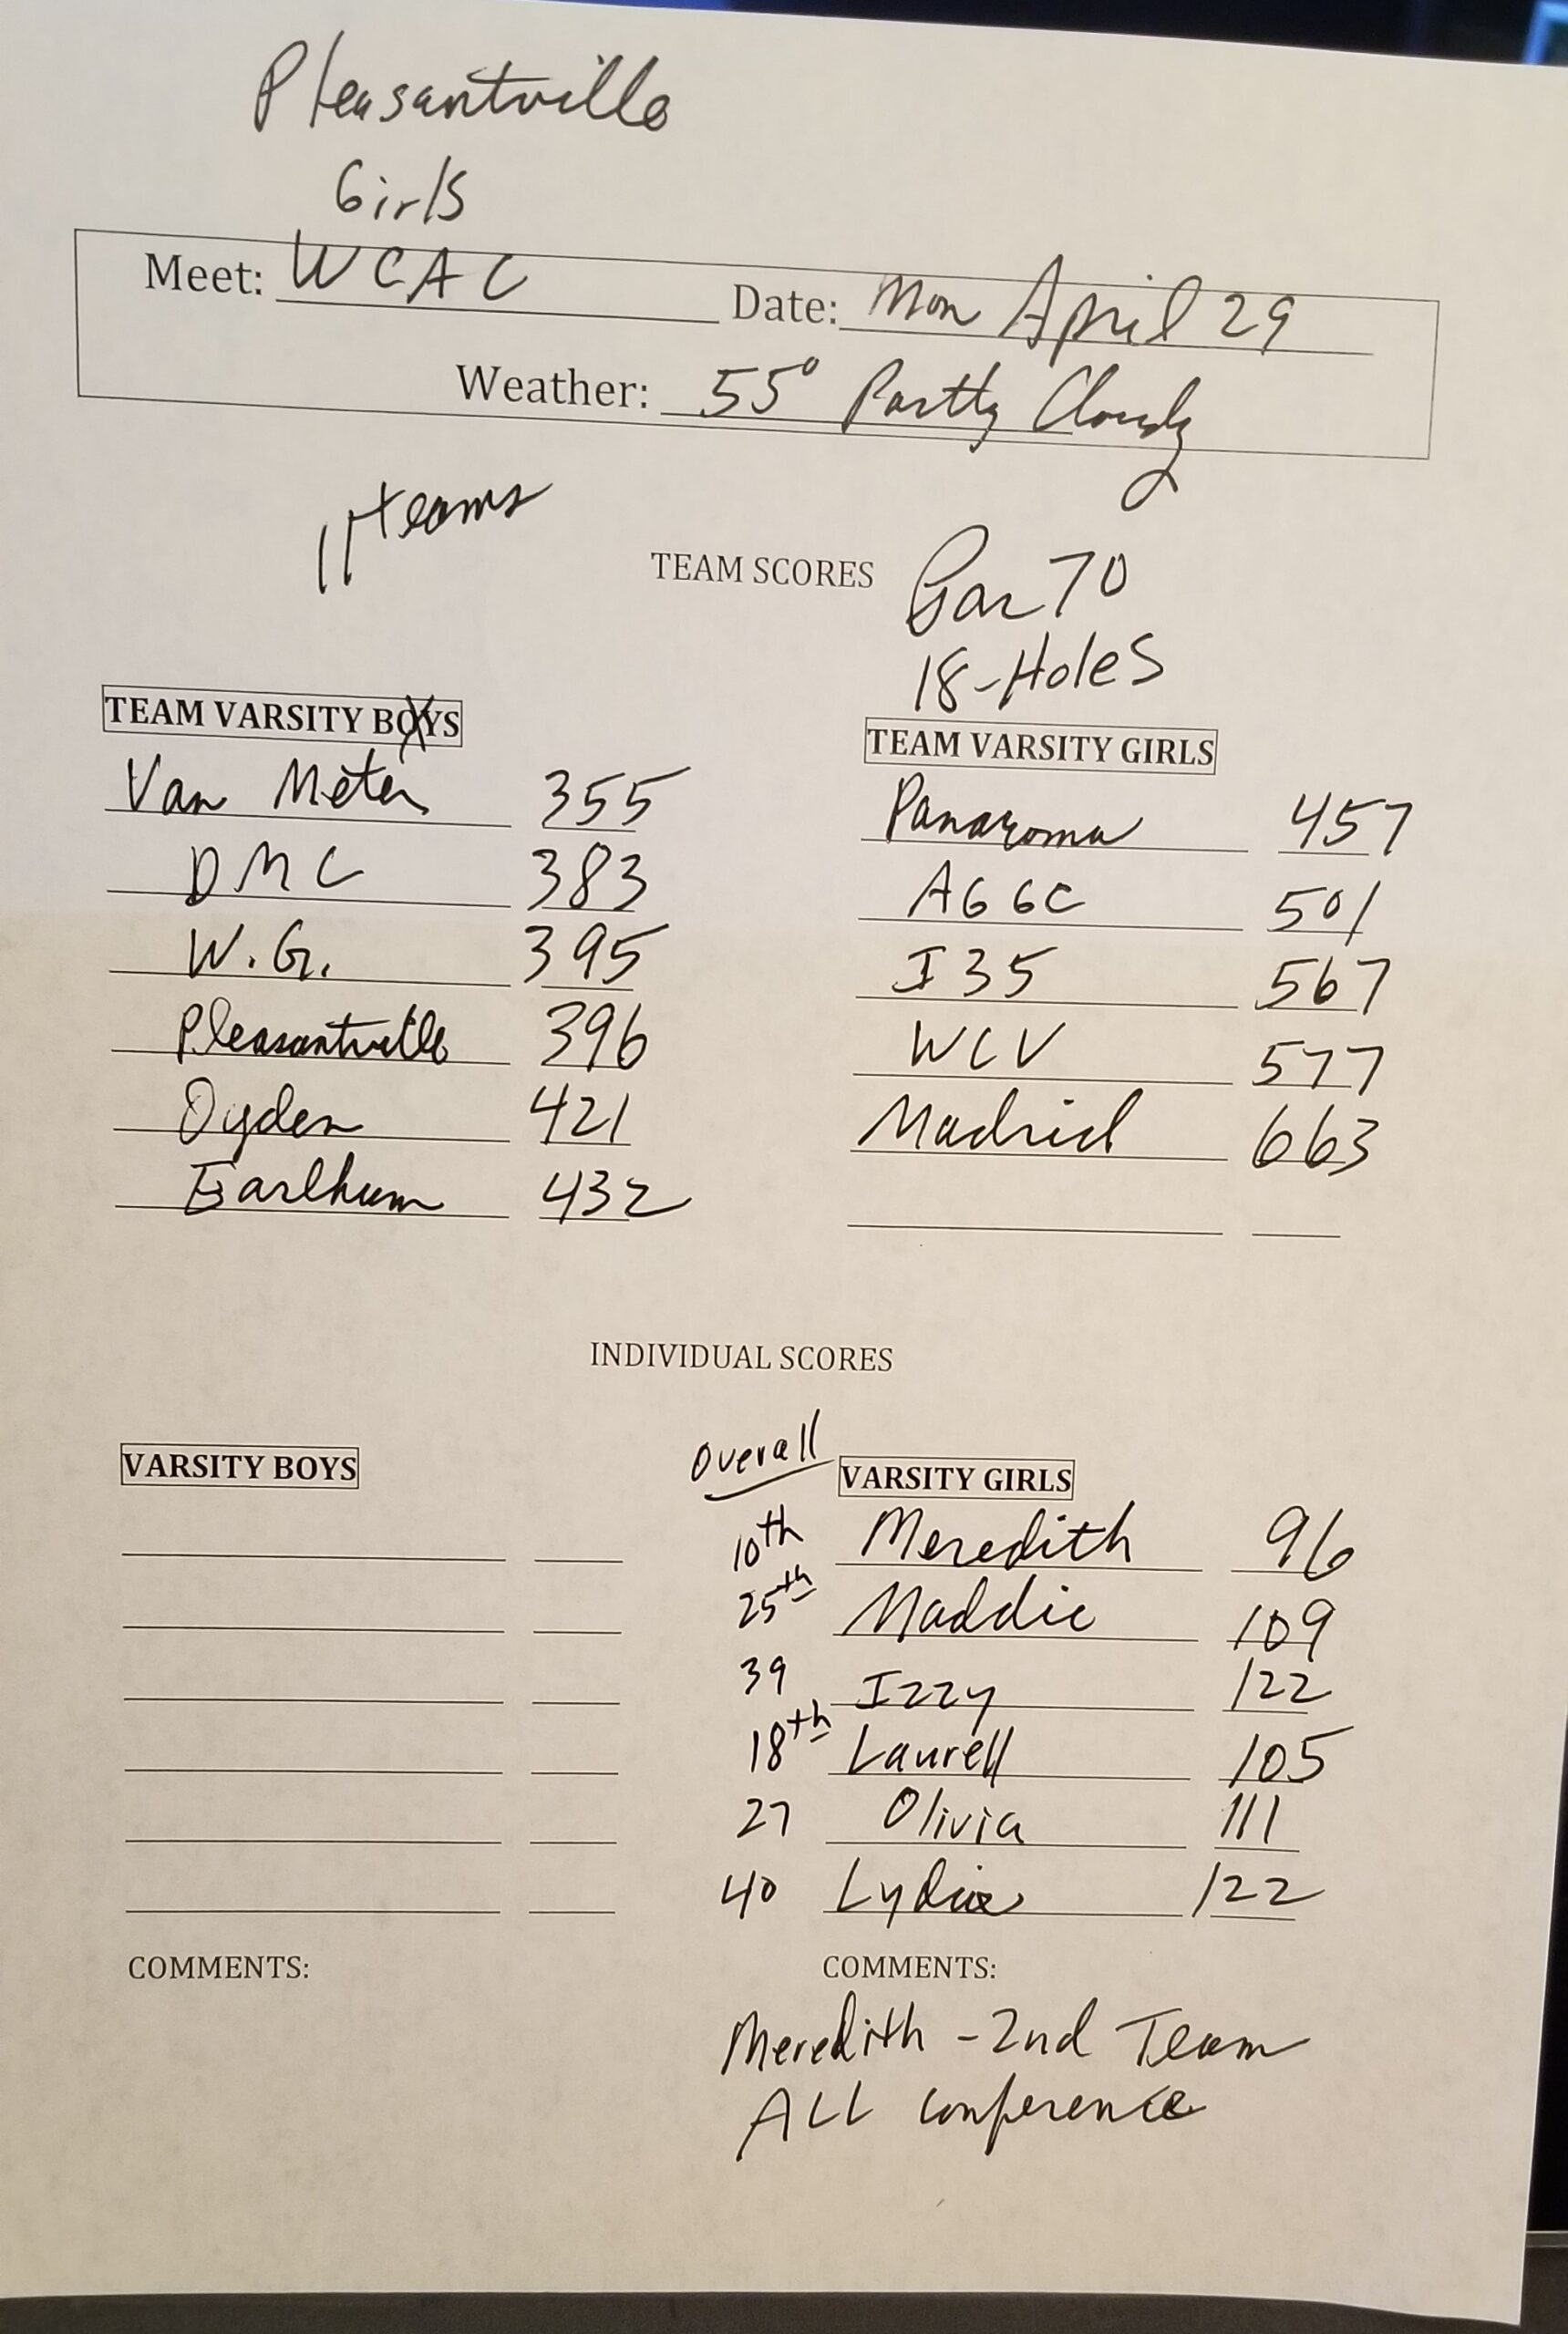 Pleasantville
Girls
Meet: WCAC Date: Mon April 29
Weather: 55° Partly Cloudy
11 teams
TEAM SCORES Par 70
18-Holes
TEAM VARSITY BOYS
Van Meter 355
DMC 383
W.G. 395
Pleasantville 396
Ogden 421
Earlhum 432
TEAM VARSITY GIRLS
Panaroma 457
AGGC 501
I35 567
WCV 577
Madrid 663
INDIVIDUAL SCORES
VARSITY BOYS
Overall VARSITY GIRLS
10th Meredith 96
25th Maddie 109
39 Izzy 122
18th Laurell 105
27 Olivia 111
40 Lydia 122
COMMENTS:
COMMENTS:
Meredith - 2nd Team
ALL conference